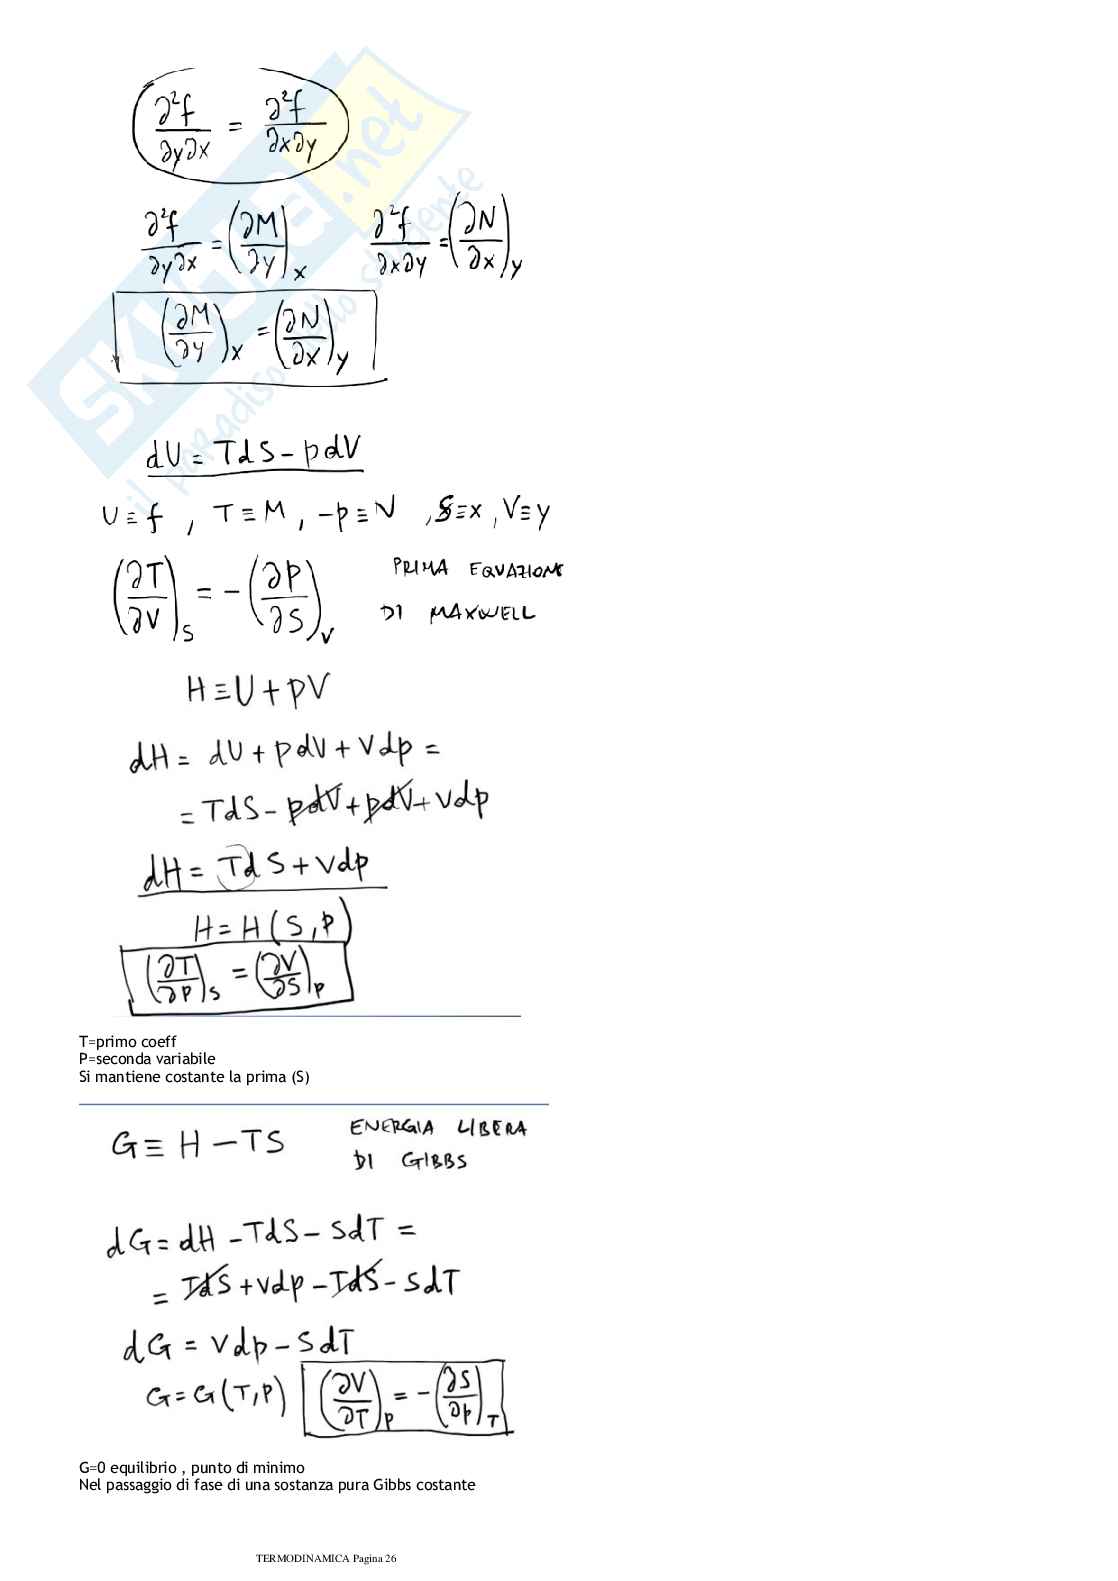 ∂²f/∂y∂x = ∂²f/∂x∂y
∂²f/∂y∂x = (∂M/∂y)x   ∂²f/∂x∂y = (∂N/∂x)y
(∂M/∂y)x = (∂N/∂x)y
dU = TdS - pdV
U ≡ f , T ≡ M , -p ≡ N , S ≡ x , V ≡ y
(∂T/∂V)S = -(∂p/∂S)V   PRIMA EQUAZIONE
DI MAXWELL
H ≡ U + pV
dH = dU + pdV + Vdp =
= TdS - pdV + pdV + Vdp
dH = TdS + Vdp
H = H(S,p)
(∂T/∂p)S = (∂V/∂S)p
T=primo coeff
P=seconda variabile
Si mantiene costante la prima (S)
G ≡ H - TS   ENERGIA LIBERA
DI GIBBS
dG = dH - TdS - SdT =
= TdS + Vdp - TdS - SdT
dG = Vdp - SdT
G = G(T,p)   (∂V/∂T)p = -(∂S/∂p)T
G=0 equilibrio , punto di minimo
Nel passaggio di fase di una sostanza pura Gibbs costante
TERMODINAMICA Pagina 26
SKUOLA.net
il paradiso dello studente